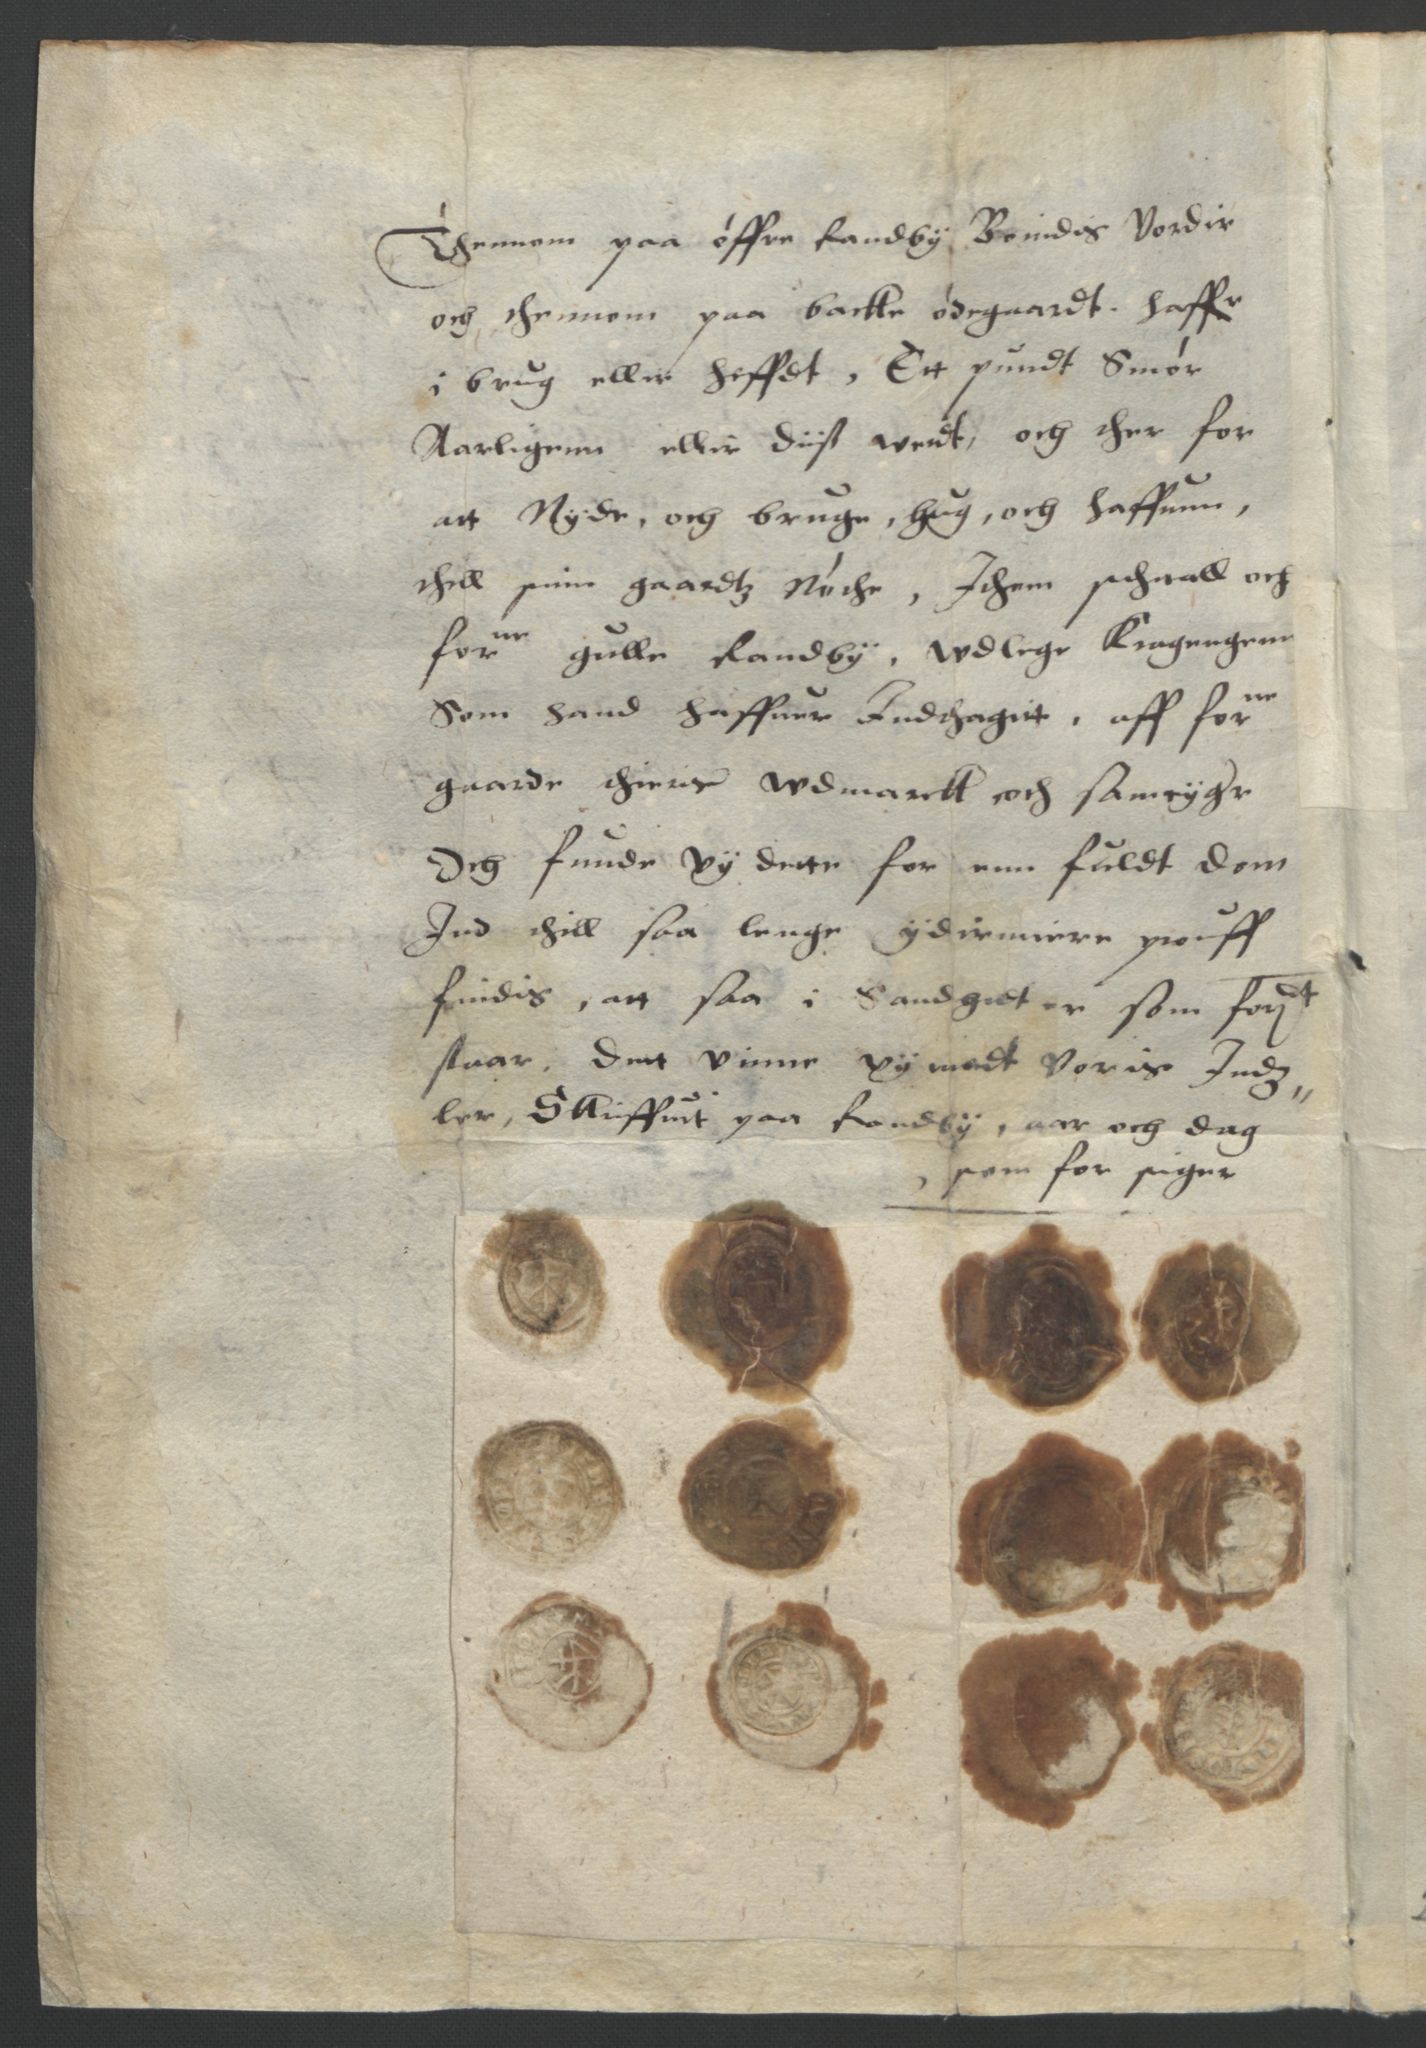 Thennom paa öffre Randby Boindis Vordir
och thennom paa backe ödegaardt. haffe
i brug eller heffdt, Ett pundt Smór
Aarligenn eller diist werdt, och ther for
att Nyde, och bruge, hug, och haffnnn,
thill sinn gaardtz Nóthe, Ithem schall och
forne gulle Randby, wdlege Kragengenn
Som hand haffuer Indthagitt, aff forne
gaarde thieris wdmarck och sameyghe
Och funde vy dette for enn fuldt dom
Ind thill saa lenge ydirmiere prouff
findis, att saa i Sandhedt er som forsdt
staar, dett vinne vy medt Voris Indz„
ler, Skriffuit paa Randby, aar och dag
, som for siger